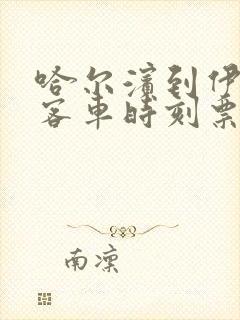 哈尔滨到伊
客车时刻票
南凛